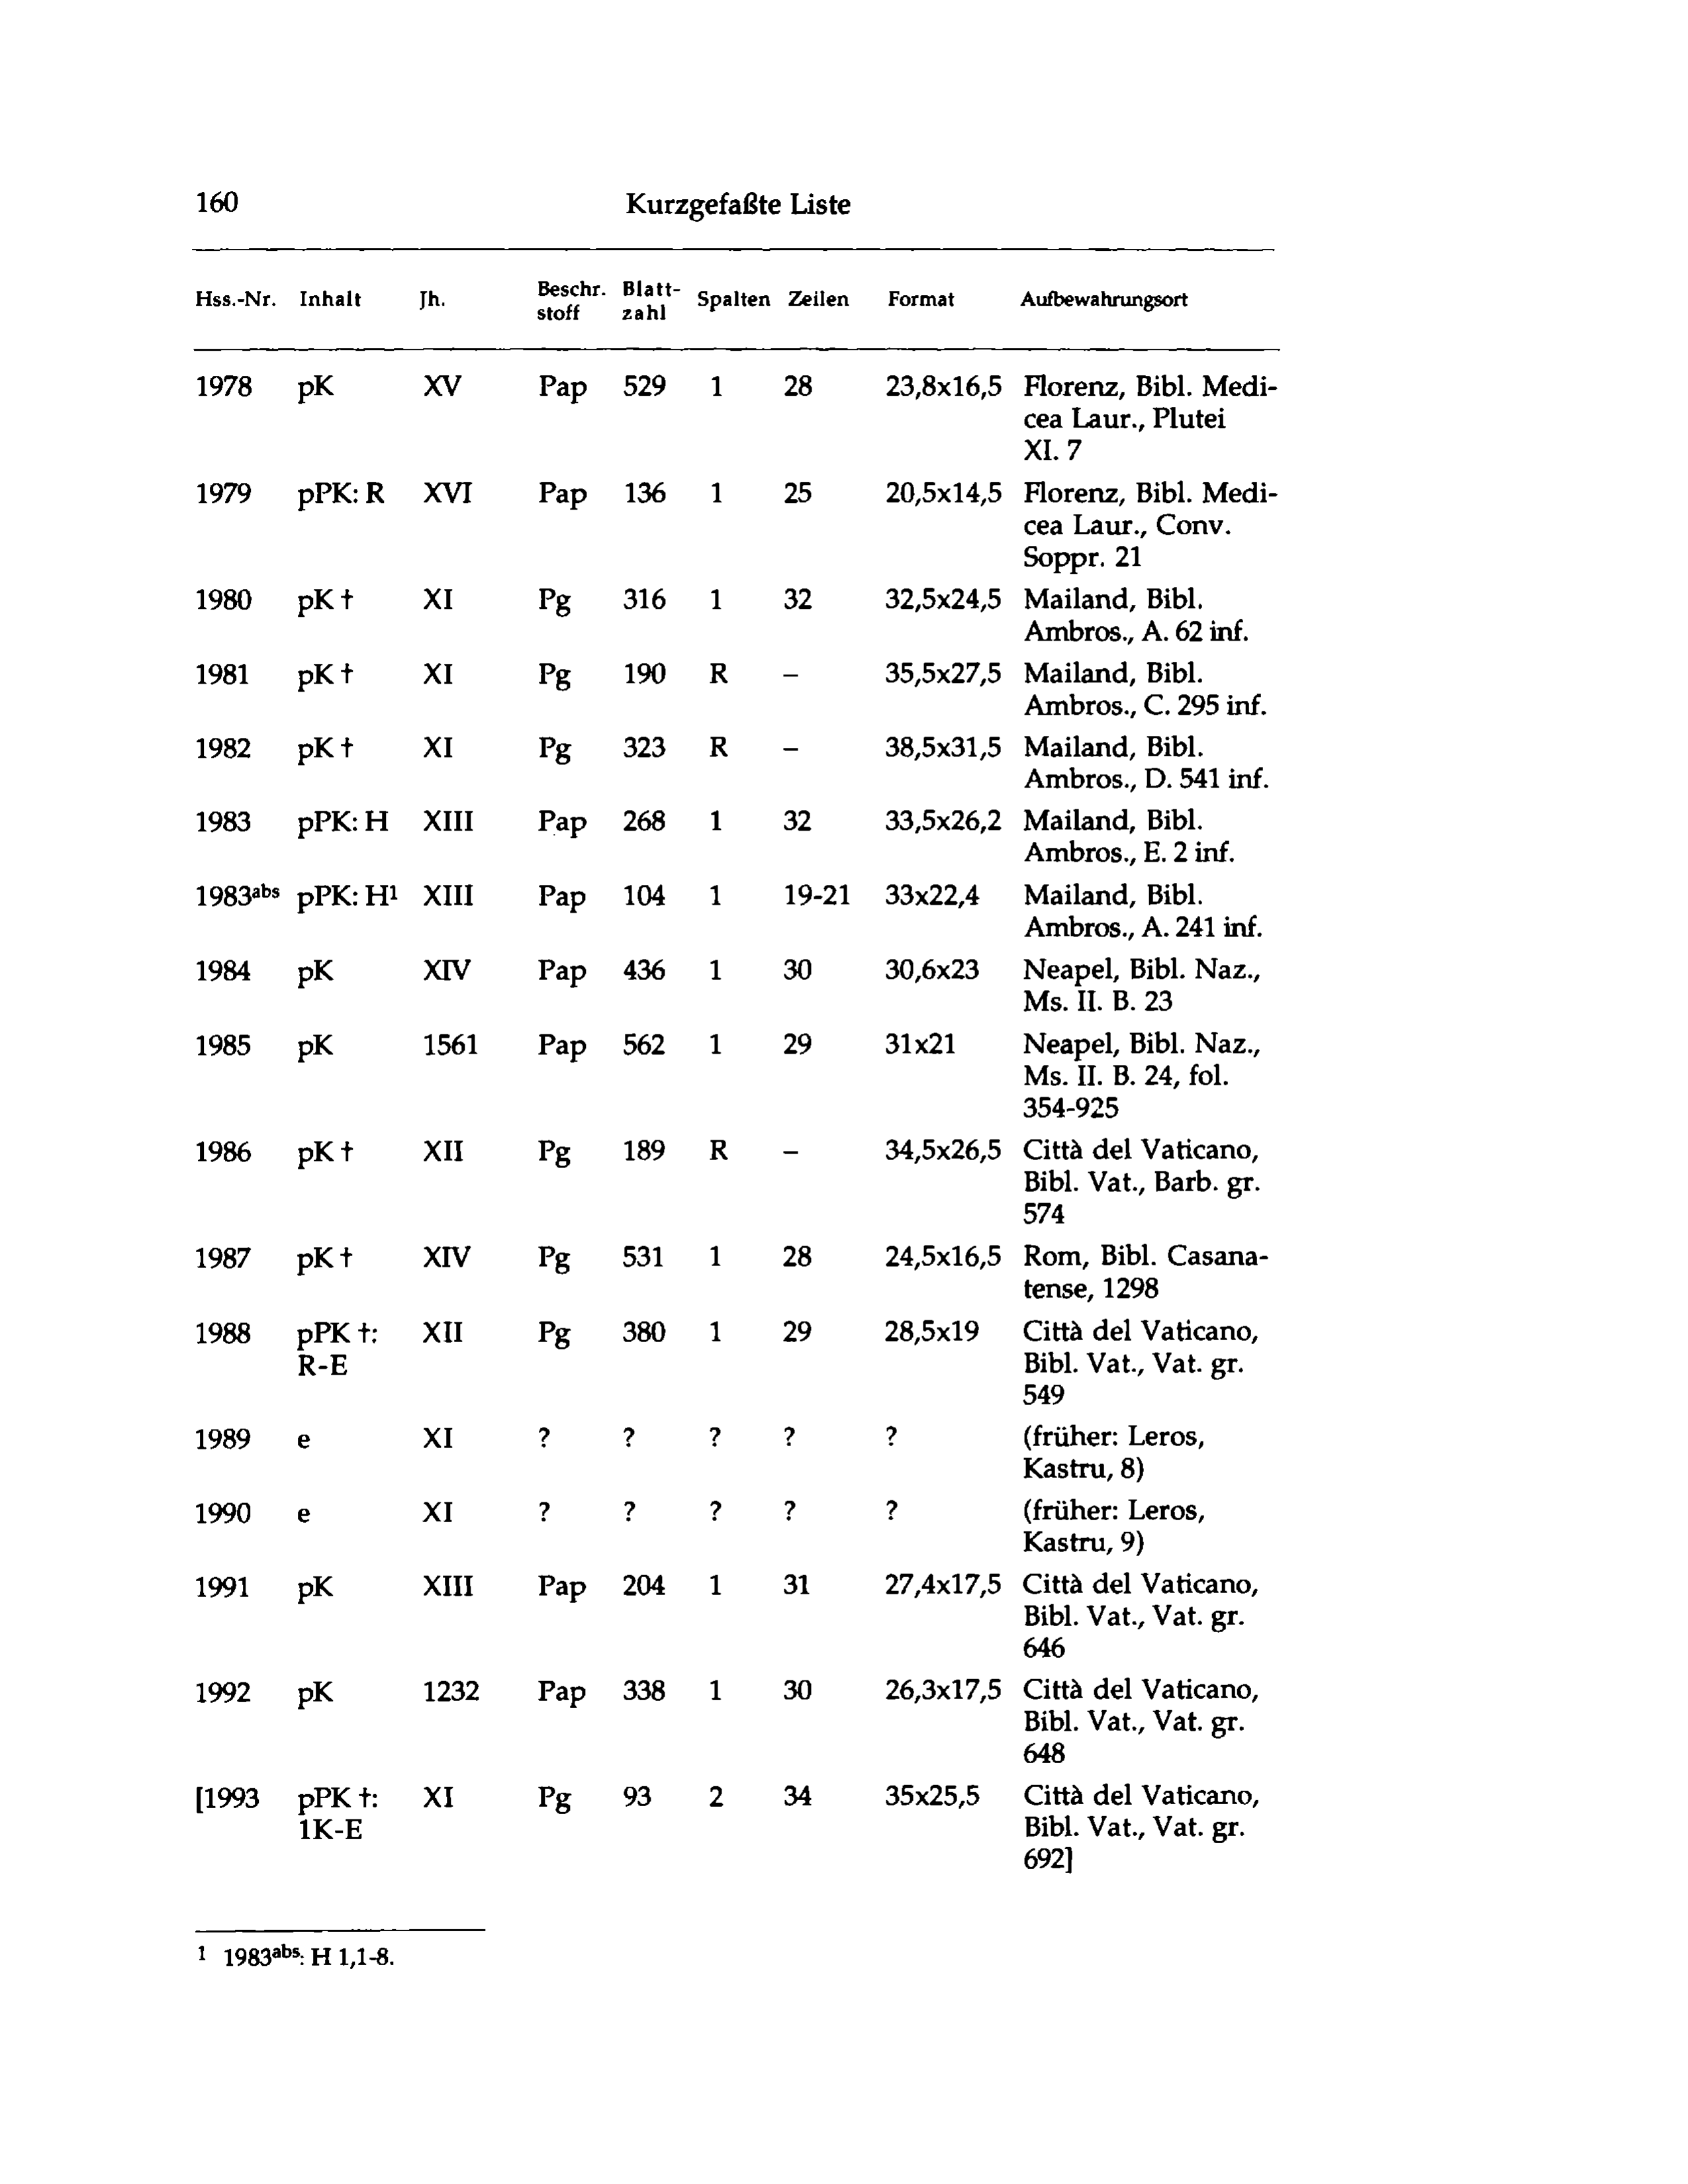 160 Kurzgefaßte Liste
Hss.-Nr. Inhalt Jh. Beschr. stoff Blatt- zahl Spalten Zeilen Format Aufbewahrungsort
1978 pK XV Pap 529 1 28 23,8x16,5 Florenz, Bibl. Medi-
cea Laur., Plutei
XI. 7
1979 pPK: R XVI Pap 136 1 25 20,5x14,5 Florenz, Bibl. Medi-
cea Laur., Conv.
Soppr. 21
1980 pK † XI Pg 316 1 32 32,5x24,5 Mailand, Bibl.
Ambros., A. 62 inf.
1981 pK † XI Pg 190 R – 35,5x27,5 Mailand, Bibl.
Ambros., C. 295 inf.
1982 pK † XI Pg 323 R – 38,5x31,5 Mailand, Bibl.
Ambros., D. 541 inf.
1983 pPK: H XIII Pap 268 1 32 33,5x26,2 Mailand, Bibl.
Ambros., E. 2 inf.
1983ᵃᵇˢ pPK: H¹ XIII Pap 104 1 19-21 33x22,4 Mailand, Bibl.
Ambros., A. 241 inf.
1984 pK XIV Pap 436 1 30 30,6x23 Neapel, Bibl. Naz.,
Ms. II. B. 23
1985 pK 1561 Pap 562 1 29 31x21 Neapel, Bibl. Naz.,
Ms. II. B. 24, fol.
354-925
1986 pK † XII Pg 189 R – 34,5x26,5 Città del Vaticano,
Bibl. Vat., Barb. gr.
574
1987 pK † XIV Pg 531 1 28 24,5x16,5 Rom, Bibl. Casana-
tense, 1298
1988 pPK †: XII Pg 380 1 29 28,5x19 Città del Vaticano,
R-E Bibl. Vat., Vat. gr.
549
1989 e XI ? ? ? ? ? (früher: Leros,
Kastru, 8)
1990 e XI ? ? ? ? ? (früher: Leros,
Kastru, 9)
1991 pK XIII Pap 204 1 31 27,4x17,5 Città del Vaticano,
Bibl. Vat., Vat. gr.
646
1992 pK 1232 Pap 338 1 30 26,3x17,5 Città del Vaticano,
Bibl. Vat., Vat. gr.
648
[1993 pPK †: XI Pg 93 2 34 35x25,5 Città del Vaticano,
1K-E Bibl. Vat., Vat. gr.
692]
¹ 1983ᵃᵇˢ: H 1,1-8.